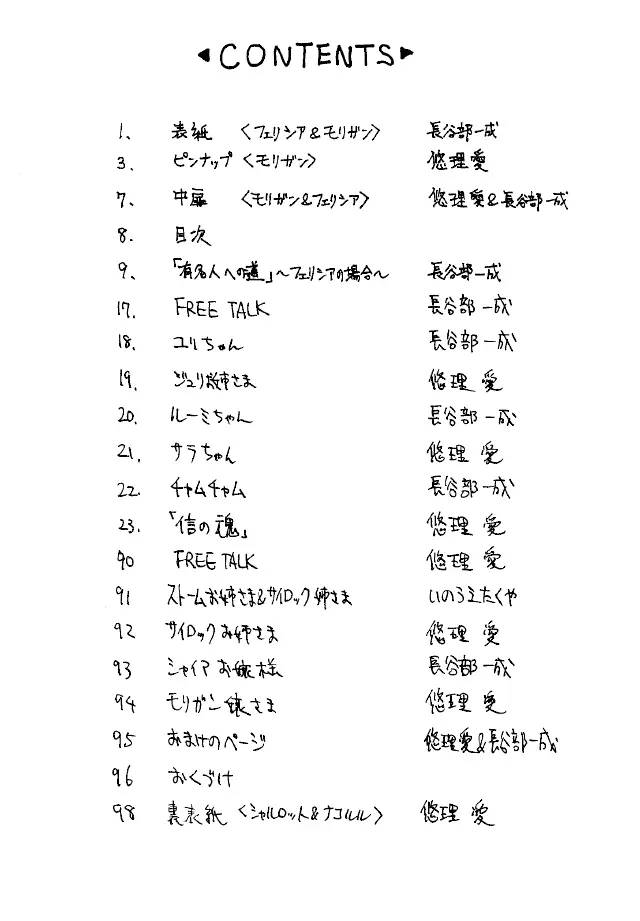 ◀CONTENTS▶
1、 表紙 〈フェリシア&モリガン〉 長谷部一成
3. ピンナップ〈モリガン〉 悠理愛
7、 中扉 〈モリガン&フェリシア〉 悠理愛&長谷部一成
8. 目次
9、 「有名人への道」〜フェリシアの場合〜 長谷部一成
17. FREE TALK 長谷部一成
18. ユリちゃん 長谷部一成
19. ジュリ姉さま 悠理 愛
20. ルーミちゃん 長谷部一成
21. サラちゃん 悠理 愛
22. チャムチャム 長谷部一成
23. 「信の魂」 悠理 愛
90 FREE TALK 悠理 愛
91 ストームお姉さま&サイロック姉さま いのうえたくや
92 サイロックお姉さま 悠理 愛
93 シャイアお嬢様 長谷部一成
94 モリガン嬢さま 悠理 愛
95 おまけのページ 悠理愛&長谷部一成
96 おくづけ
98 裏表紙〈シャルロット&ナコルル〉 悠理 愛